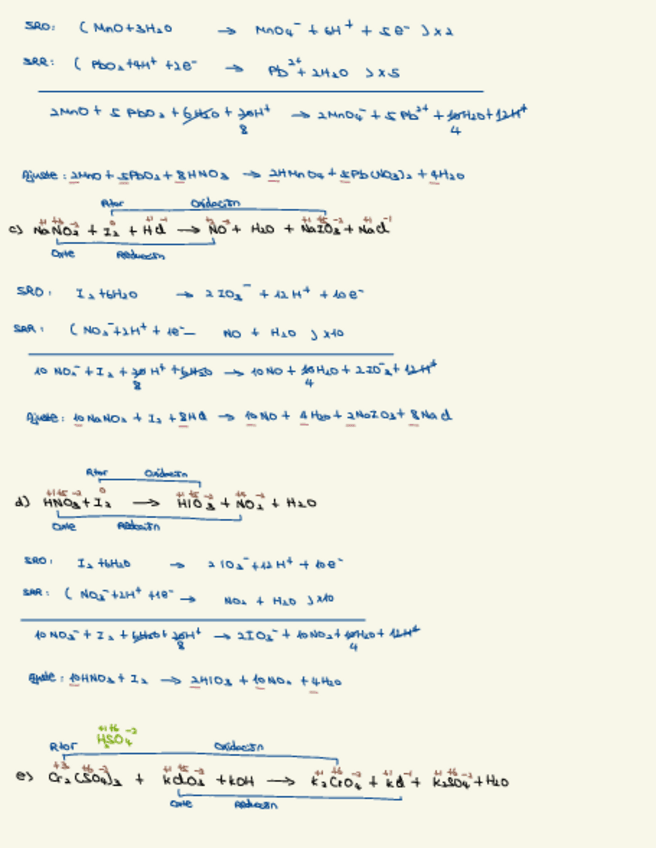 SRO: ( MnO+3H₂O → MnO₄⁻ + 6H⁺ + 5e⁻ ) x 2
SRR: ( PbO₂+4H⁺ +2e⁻ → Pb²⁺ + 2H₂O ) x 5
2MnO + 5 PbO₂ + 6H₂O + 20H⁺ → 2MnO₄⁻ + 5 Pb²⁺ + 10H₂O + 12H⁺
8 4
Ajuste: 2MnO + 5PbO₂ + 8HNO₃ → 2HMnO₄ + 5Pb(NO₃)₂ + 4H₂O
Rtor Oxidación
+1 +3 -2 0 +1 -1 +2 -2 +1 +5 -2 +1 -1
c) NaNO₂ + I₂ + HCl → NO + H₂O + NaIO₃ + NaCl
Oxte Reducción
SRO: I₂ +6H₂O → 2 IO₃⁻ + 12 H⁺ + 10e⁻
SRR: ( NO₂⁻+2H⁺ + 1e⁻ — NO + H₂O ) x10
10 NO₂⁻ + I₂ + 20 H⁺ + 6H₂O → 10NO + 10H₂O + 2 IO₃⁻ + 12H⁺
8 4
Ajuste: 10NaNO₂ + I₂ + 8HCl → 10NO + 4H₂O + 2NaIO₃ + 8NaCl
Rtor Oxidación
+1 +5 -2 0 +1 +5 -2 +4 -2
d) HNO₃ + I₂ → HIO₃ + NO₂ + H₂O
Oxte Reducción
SRO: I₂ +6H₂O → 2 IO₃⁻ +12 H⁺ + 10e⁻
SRR: ( NO₃⁻+2H⁺ +1e⁻ → NO₂ + H₂O ) x10
10 NO₃⁻ + I₂ + 6H₂O + 20H⁺ → 2IO₃⁻ + 10NO₂ + 10H₂O + 12H⁺
8 4
Ajuste: 10HNO₃ + I₂ → 2HIO₃ + 10NO₂ + 4H₂O
+1 +6 -2
H₂SO₄
Rtor Oxidación
+3 +6 -2 +1 +5 -2 +1 +6 -2 +1 -1 +1 +6 -2
e) Cr₂(SO₄)₃ + KClO₃ + KOH → K₂CrO₄ + KCl + K₂SO₄ + H₂O
Oxte Reducción